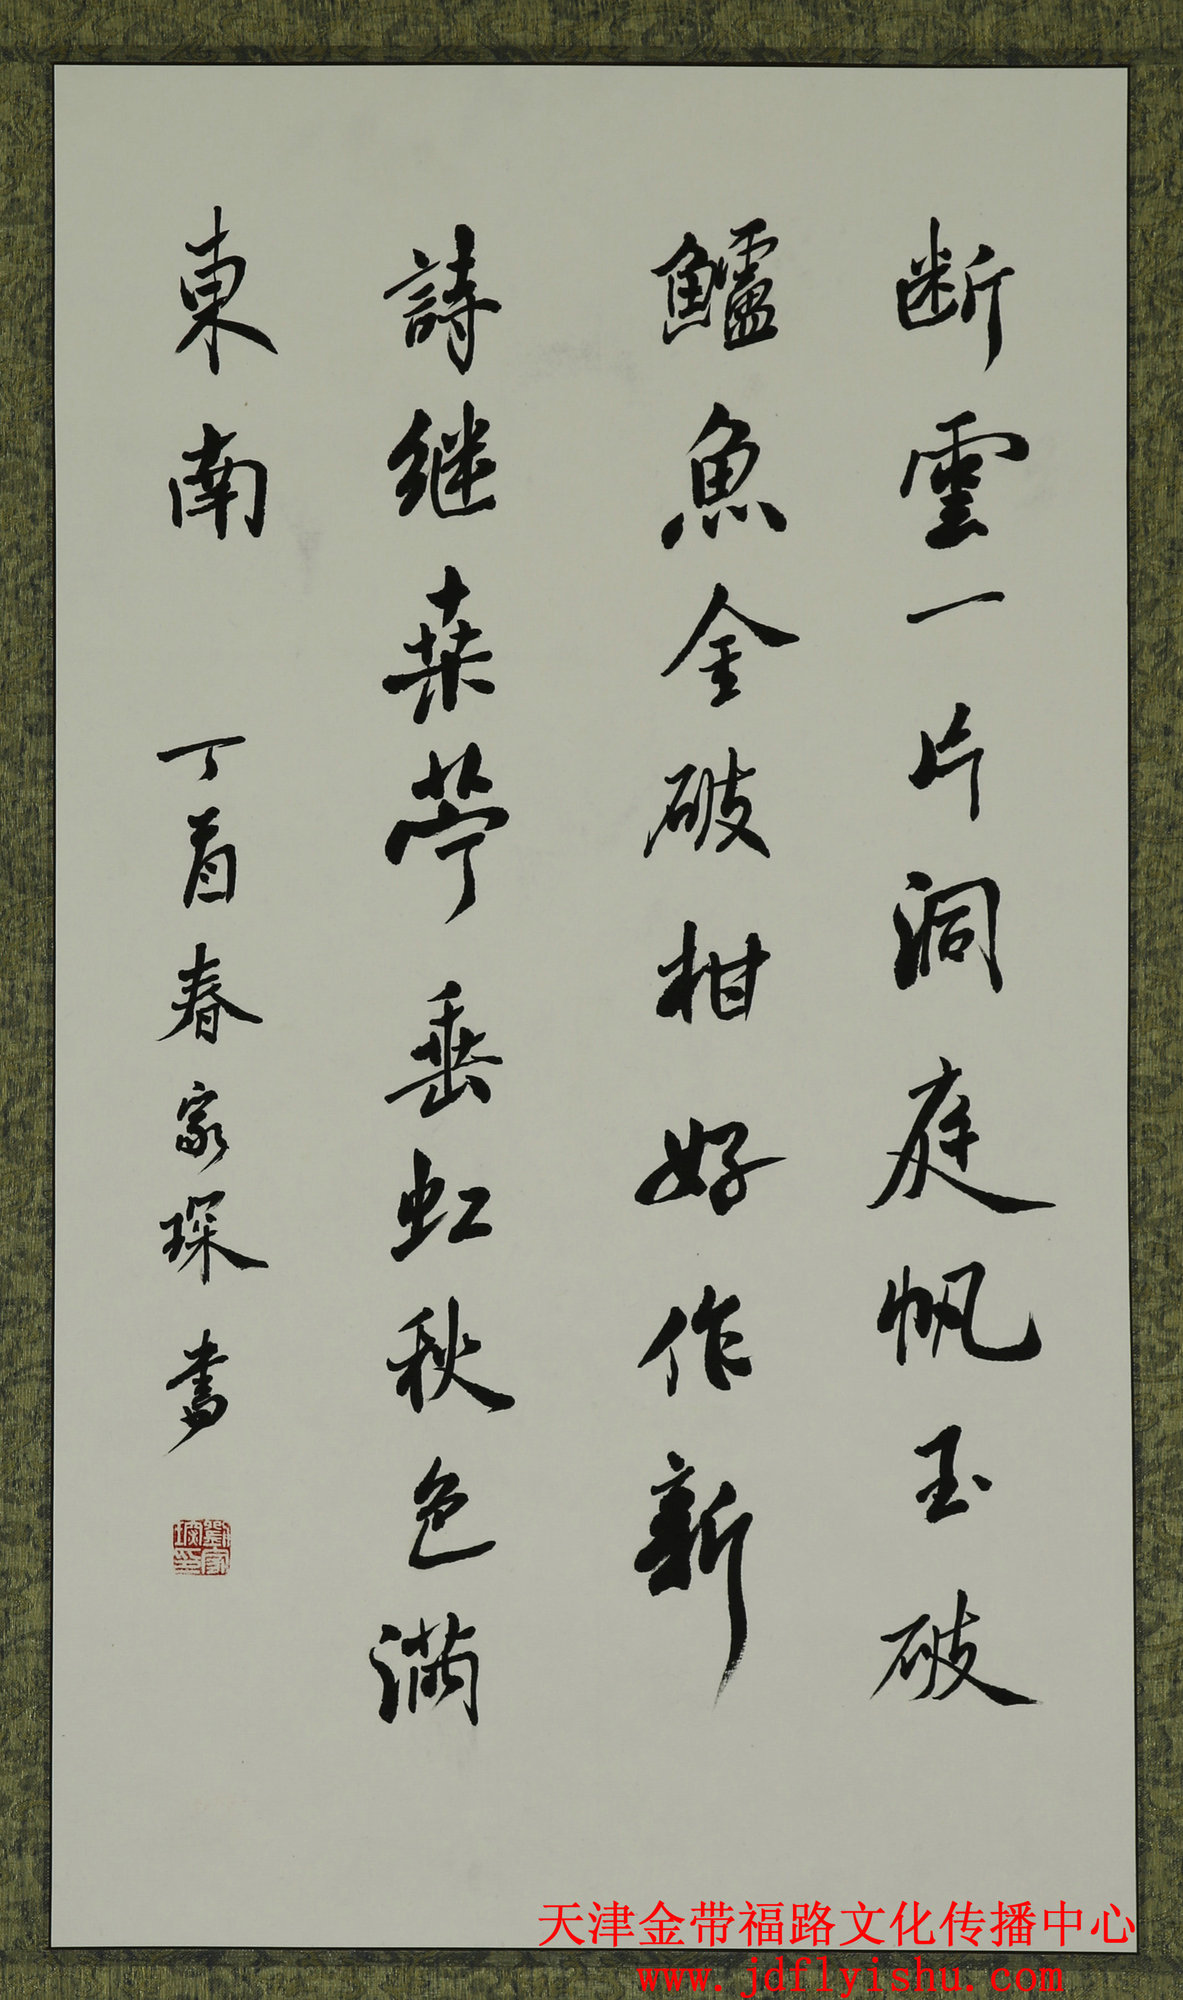 断雲一片洞庭帆玉破
鱸魚金破柑好作新
詩继桒苧垂虹秋色满
東南
丁酉春家琛書
劉家琛印
天津金带福路文化传播中心
www.jdflyishu.com